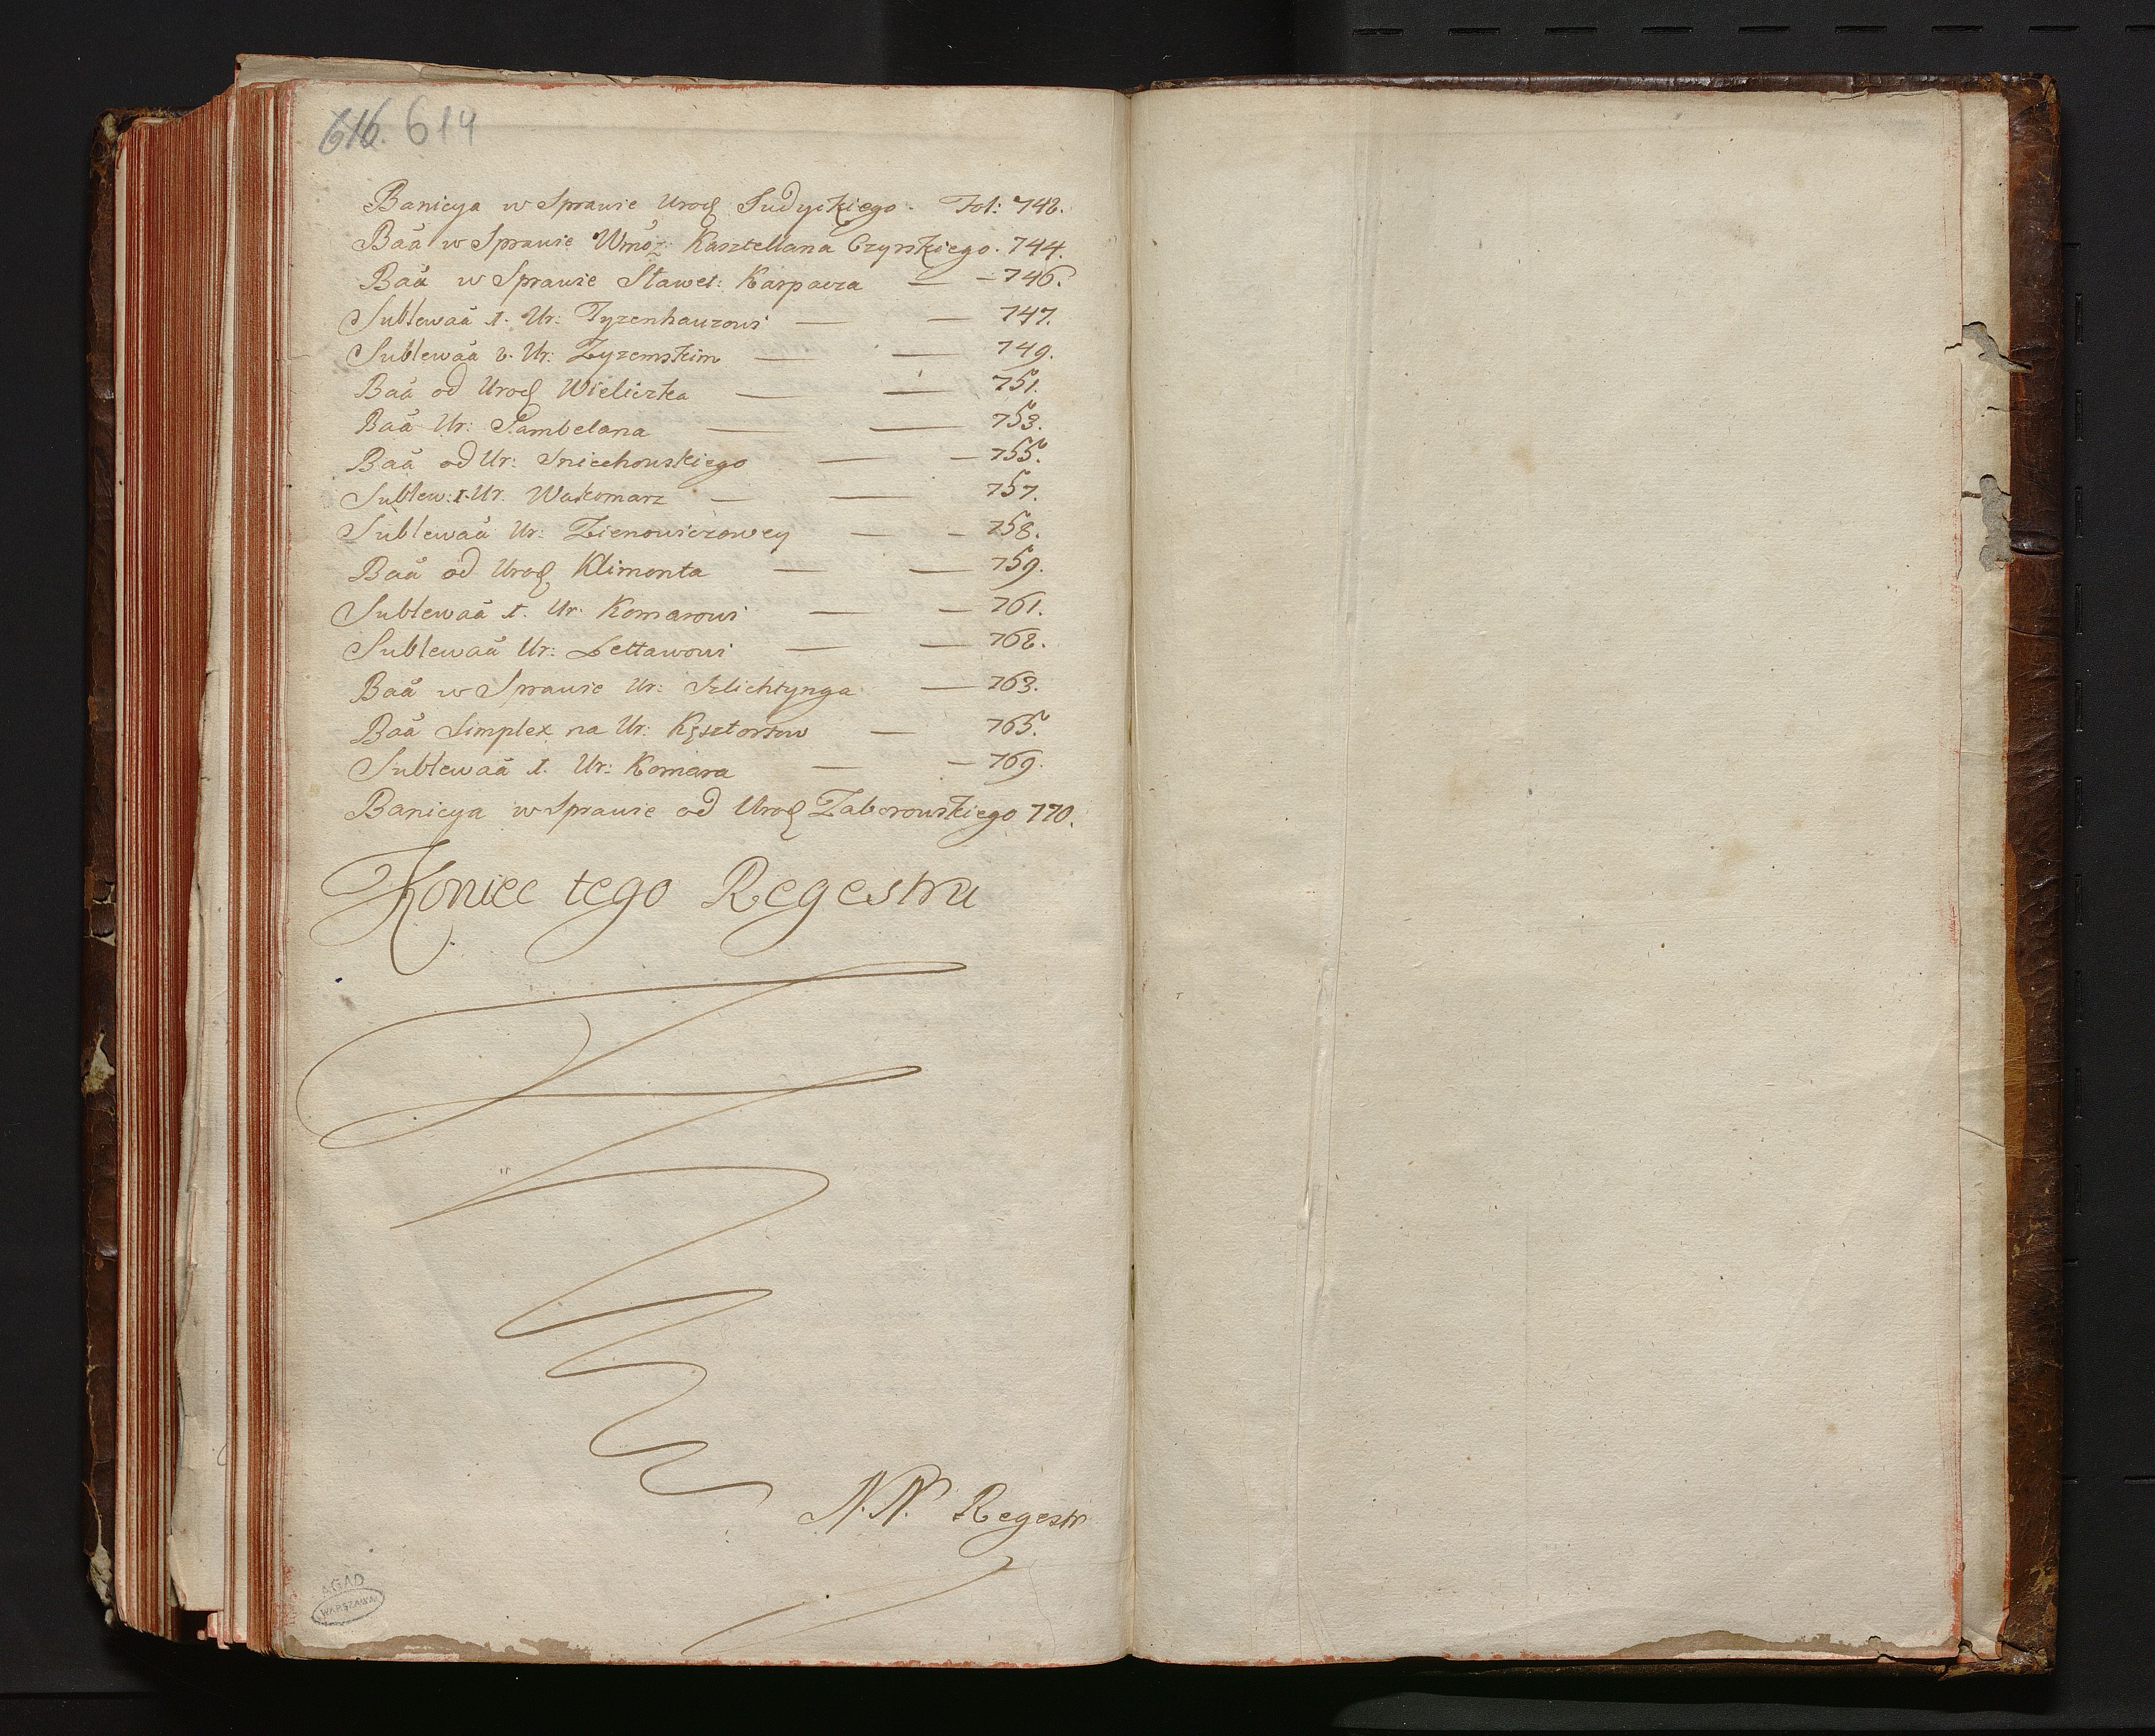 616. 614
Banicya w Sprawie Urod Judyckiego - Fol: 742.
Baã w Sprawie Wmoż: Kasztellana Czyrskiego. 744.
Baã w Sprawie Sławet: Karpacza — — 746.
Sublewaã 1. Ur: Tyzenhauzowi — — 747.
Sublewaã 2. Ur: Zyzemskim — — 749.
Baã od Urod Wieliczka — — 751.
Baã Ur: Sambelana — — 753.
Baã od Ur: Sniechowskiego — — 755.
Sublew: 1. Ur. Wakomarz — — 757.
Sublewaã Ur: Zienowiczowey — — 758.
Baã od Urod Klimonta — — 759.
Sublewaã 1. Ur. Komarowi — — 761.
Sublewaã Ur: Lettawowi — — 762.
Baã w Sprawie Ur: Szlichtynga — 763.
Baã Simplex na Ur: Kęsztortow — 765.
Sublewaã 1. Ur: Komara — — 769.
Banicya w Sprawie od Urod Zaborowskiego 770.
Koniec tego Regestru
N. N. Regestr
AGAD
WARSZAWA